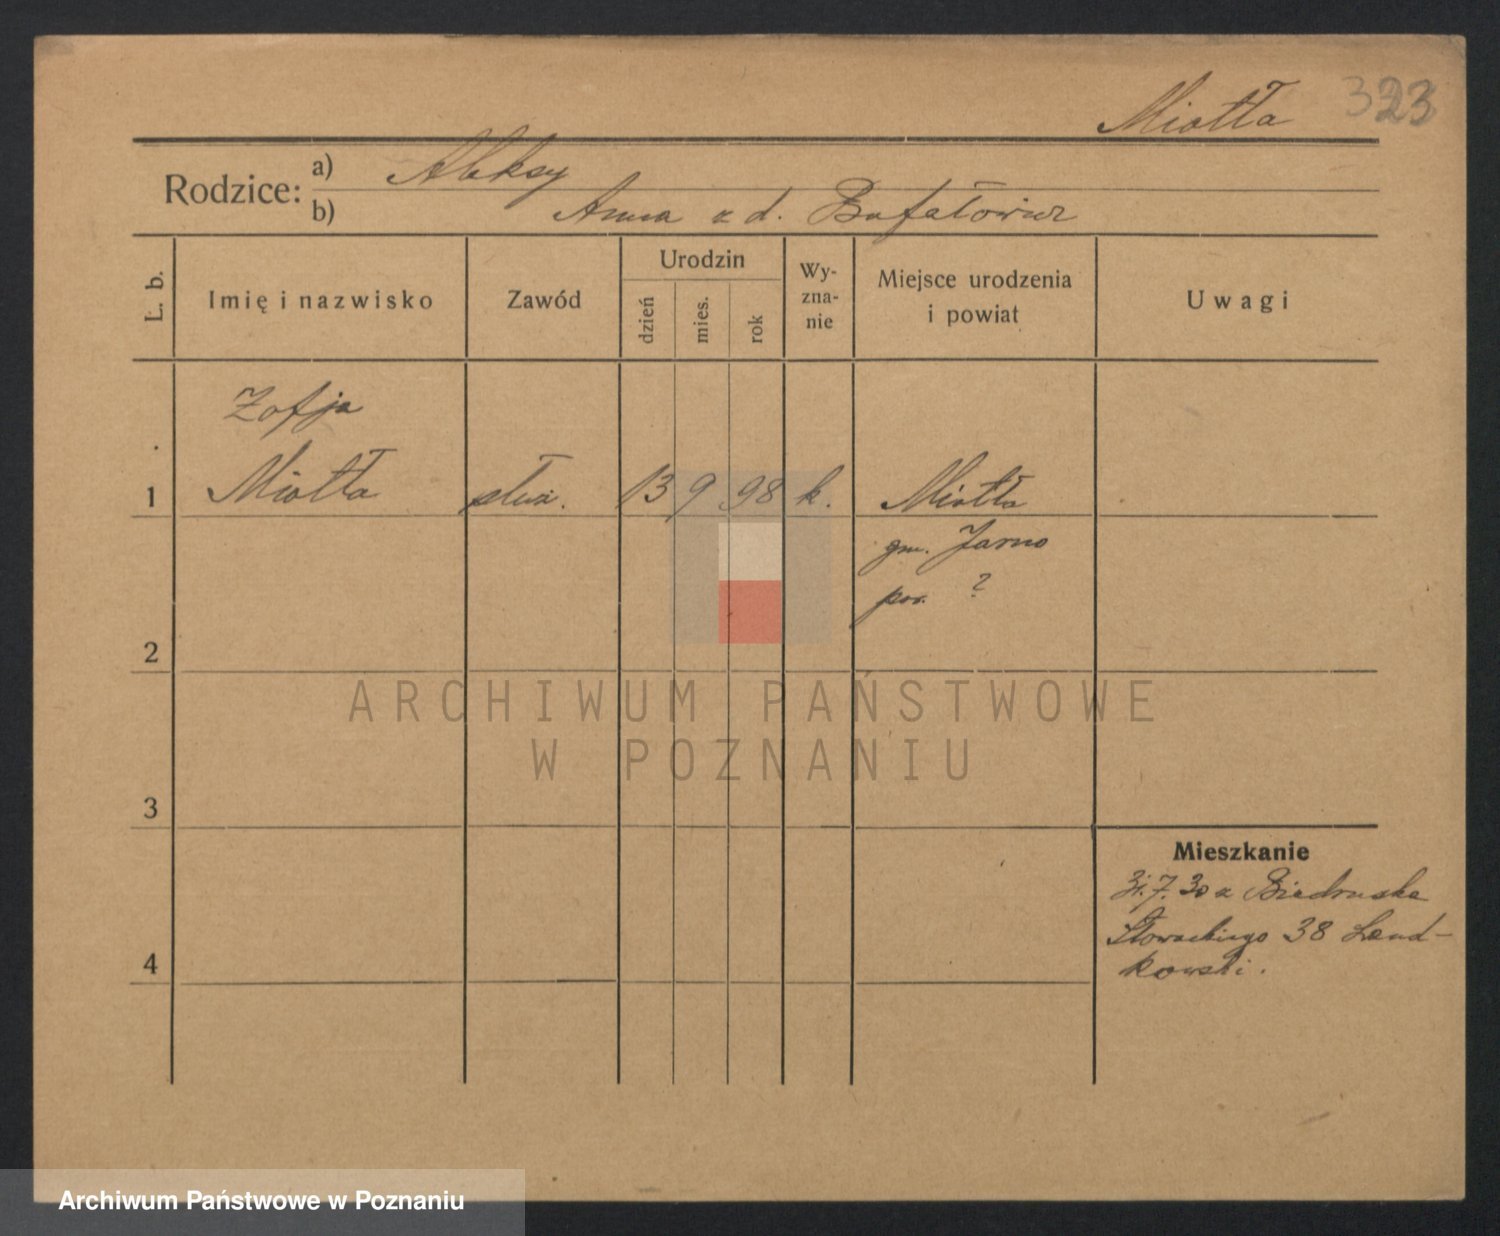 Miotła 323
Rodzice: a) Aleksy
b) Anna z d. Bufałowicz
L. b. Imię i nazwisko Zawód Urodzin dzień mies. rok Wy-zna-nie Miejsce urodzenia i powiat Uwagi
Zofja
1 Miotła służ. 13 9 98 k. Miotła
gm. Jarno
pow. ?
2
ARCHIWUM PAŃSTWOWE
W POZNANIU
3
Mieszkanie
31.7.30 z Biedruska
Słowackiego 38 Lend-
4 kowski.
Archiwum Państwowe w Poznaniu